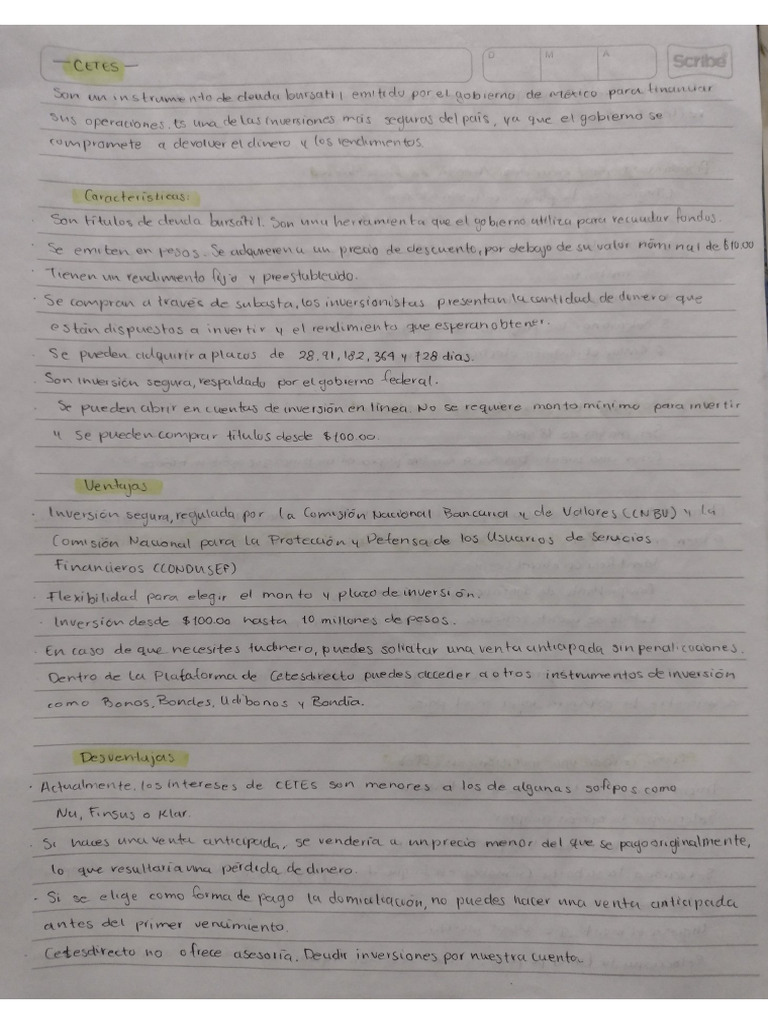 CETES
D M A Scribe
Son un instrumento de deuda bursatil emitido por el gobierno de México para financiar
sus operaciones. Es una de las inversiones más seguras del país, ya que el gobierno se
compromete a devolver el dinero y los rendimientos.
Características:
· Son títulos de deuda bursátil. Son una herramienta que el gobierno utiliza para recaudar fondos.
· Se emiten en pesos. Se adquieren a un precio de descuento, por debajo de su valor nóminal de $10.00
· Tienen un rendimiento fijo y preestablecido.
· Se compran a través de subasta, los inversionistas presentan la cantidad de dinero que
están dispuestos a invertir y el rendimiento que esperan obtener.
· Se pueden adquirir a plazos de 28, 91, 182, 364 y 728 días.
· Son inversión segura, respaldado por el gobierno federal.
· Se pueden abrir en cuentas de inversión en línea. No se requiere monto mínimo para invertir
y se pueden comprar títulos desde $100.00.
Ventajas
· Inversión segura, regulada por la Comisión Nacional Bancaria y de Valores (CNBV) y la
Comisión Nacional para la Protección y Defensa de los Usuarios de Servicios
Financieros (CONDUSEF)
· Flexibilidad para elegir el monto y plazo de inversión.
· Inversión desde $100.00 hasta 10 millones de pesos.
· En caso de que necesites tu dinero, puedes solicitar una venta anticipada sin penalizaciones.
Dentro de la Plataforma de Cetesdirecto puedes acceder a otros instrumentos de inversión
como Bonos, Bondes, Udibonos y Bondia.
Desventajas
· Actualmente, los intereses de CETES son menores a los de algunas sofipos como
Nu, Finsus o Klar.
· Si haces una venta anticipada, se vendería a un precio menor del que se pago originalmente,
lo que resultaría una pérdida de dinero.
· Si se elige como forma de pago la domiciliación, no puedes hacer una venta anticipada
antes del primer vencimiento.
· Cetesdirecto no ofrece asesoría. Decidir inversiones por nuestra cuenta.